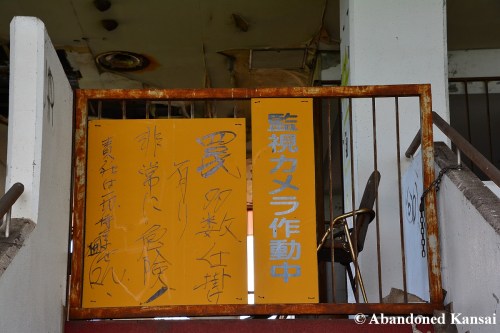 監視カメラ作動中
罠多数仕掛
有り
非常に危険
©Abandoned Kansai